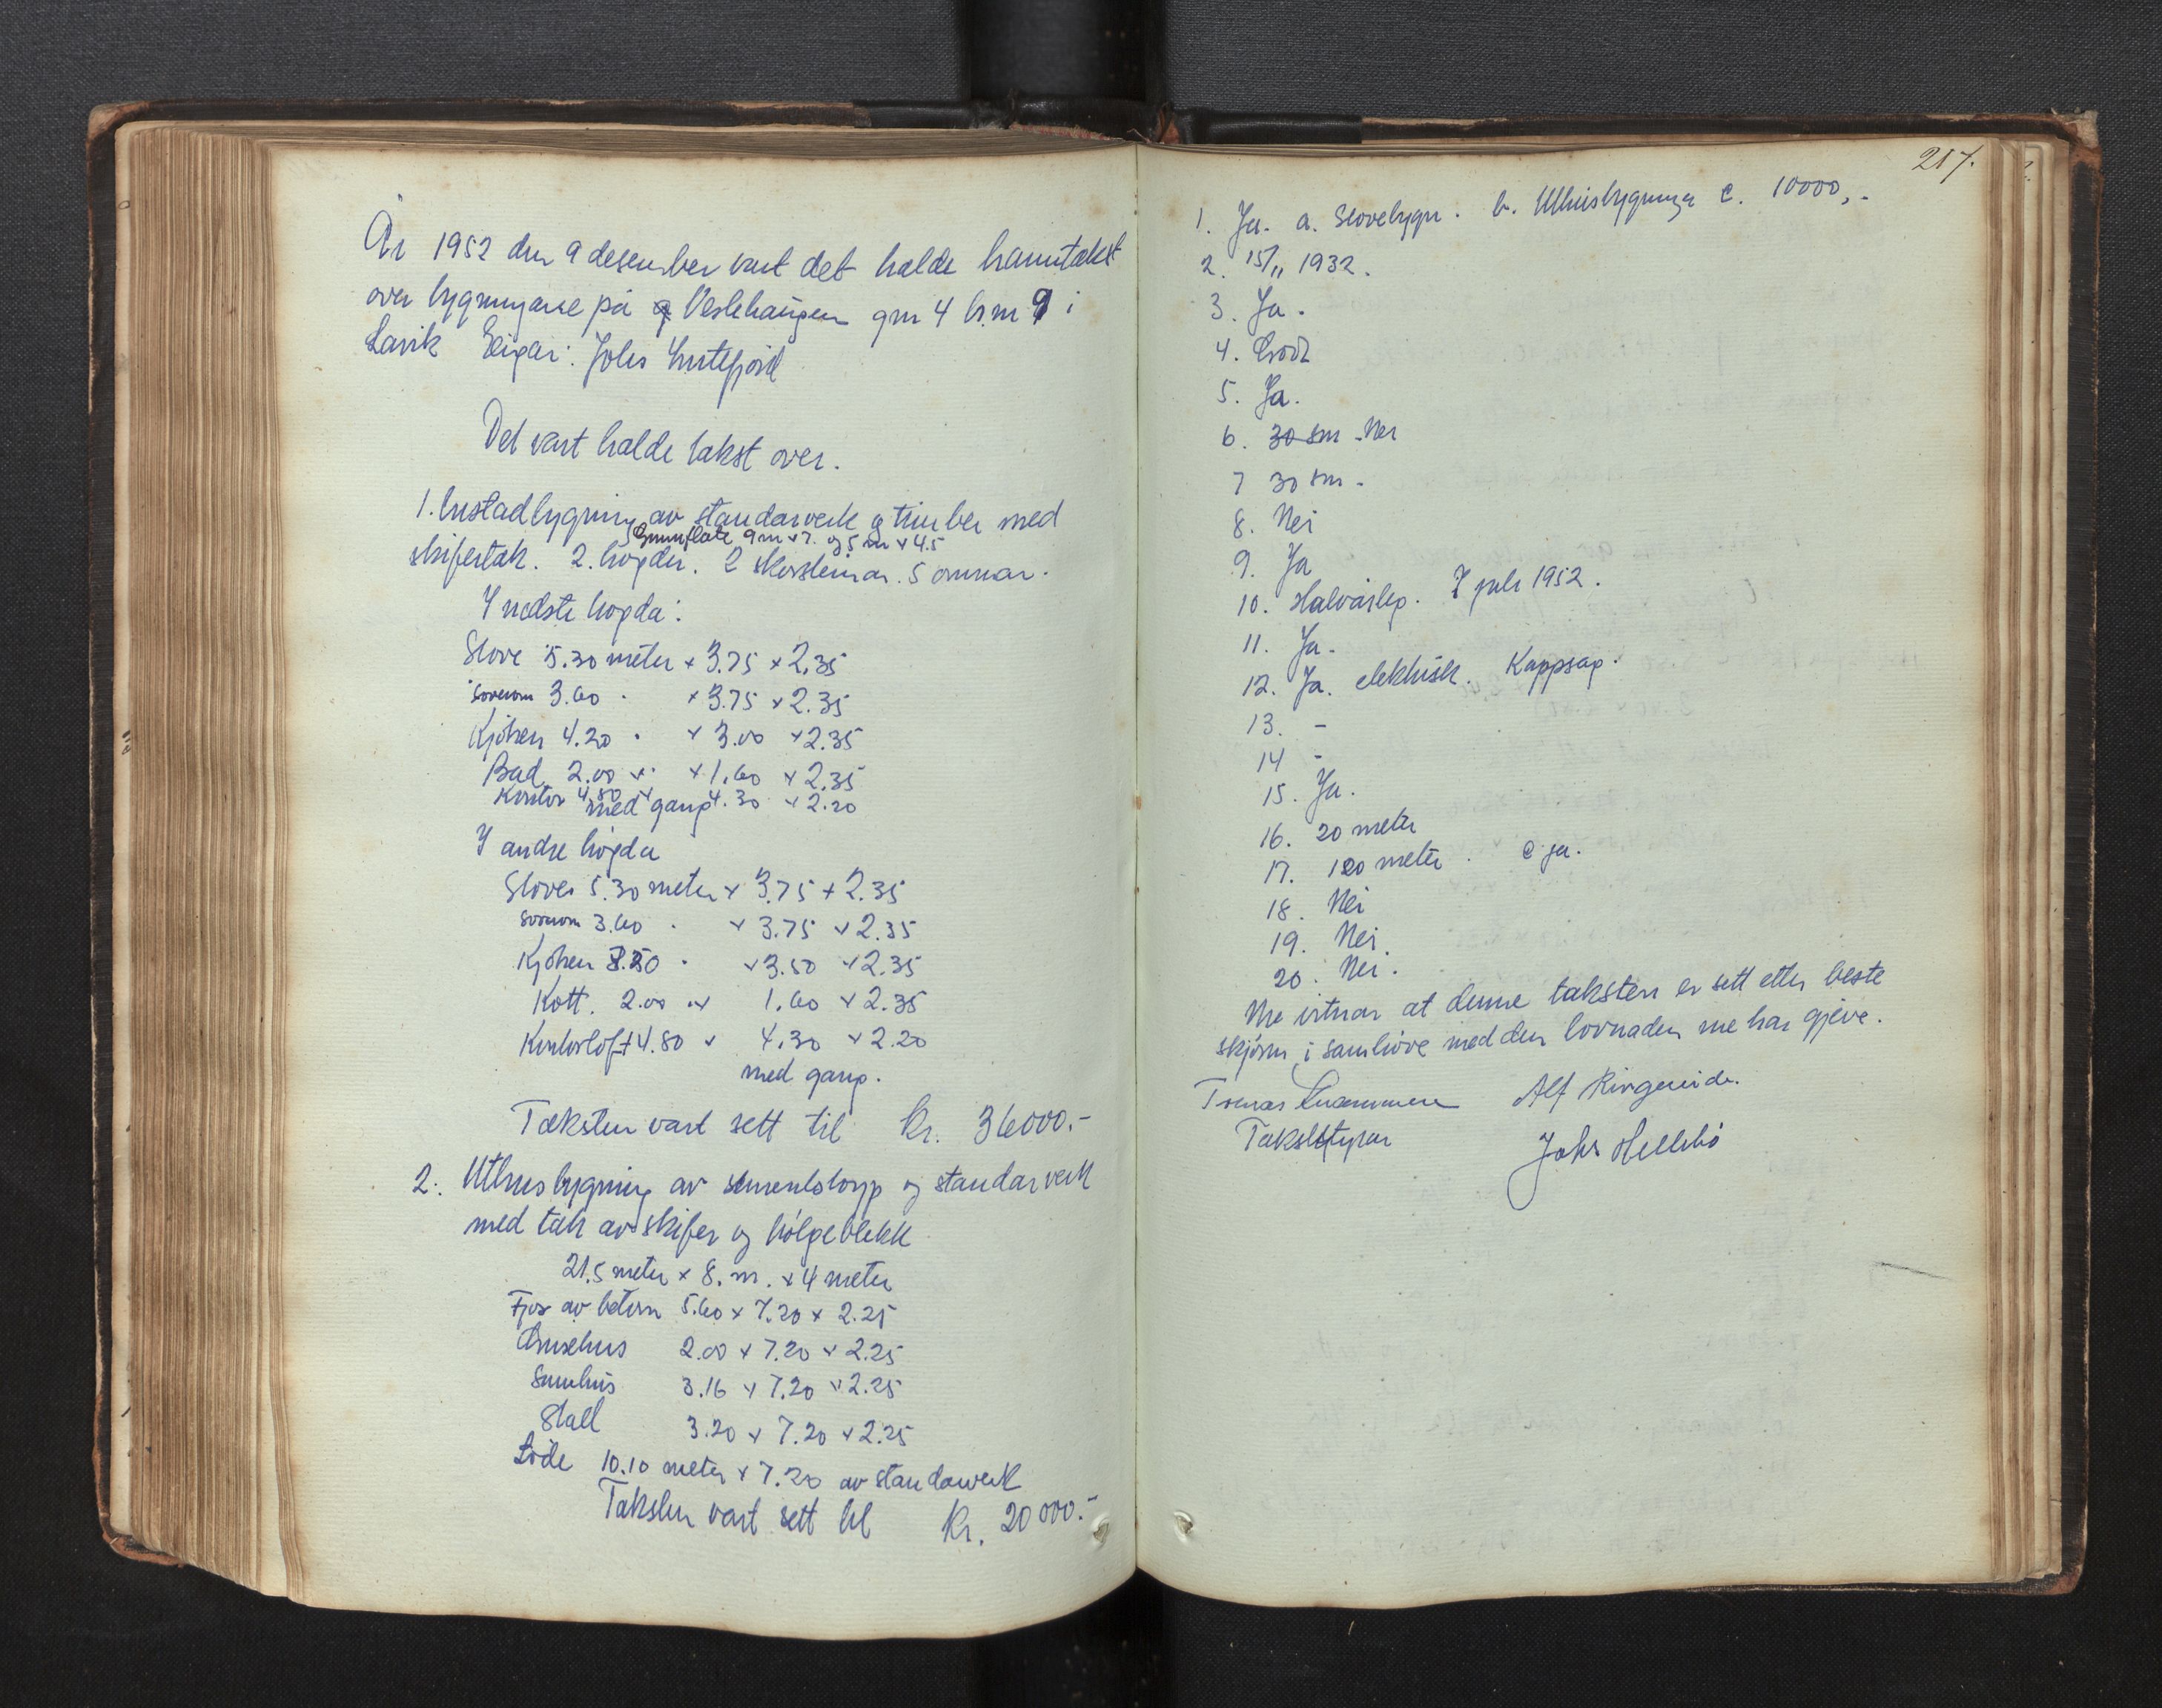 År 1952 den 9 desember vart det halde branntakst
over bygningane på Veslehaugen gm 4 br.m 9 i
Lavik Eigar: Johs Instefjord
Det vart halde takst over.
1. Bustadbygning av standarverk og timber med
Grunnflate 9 m x 7. og 5 m x 4.5
skifertak. 2. høgder. 2 skorsteinar. 5 omnar.
I nedste høgda:
Stove 5.30 meter x 3.75 x 2.35
Soverom 3.60 " x 3.75 x 2.35
Kjøken 4.20 " x 3.00 x 2.35
Bad 2.00 x " x 1.60 x 2.35
Kontor 4.80 x 4.30 x 2.20
med gang
I andre høgda
Stove 5.30 meter x 3.75 x 2.35
Soverom 3.60 " x 3.75 x 2.35
Kjøken 3.50 " x 3.50 x 2.35
Kott. 2.00 x 1.60 x 2.35
Kontorloft 4.80 x 4.30 x 2.20
med gang.
Taksten vart sett til Kr. 36000.-
2. Uthusbygning av sementstøyp og standarverk
med tak av skifer og bølgeblekk
21.5 meter x 8. m. x 4 meter
Fjos av betong 5.60 x 7.20 x 2.25
Grisehus 2.00 x 7.20 x 2.25
Sauehus 3.16 x 7.20 x 2.25
Stall 3.20 x 7.20 x 2.25
Løde 10.10 meter x 7.20 av standarverk
Taksten vart sett til Kr. 20000.-
217.
1. Ja. a. Stovebygn. b. Uthusbygninga c. 10000,-
2. 15/11 1932.
3. Ja.
4. Godt
5. Ja.
6. 30 sm - Nei
7 30 sm.
8. Nei
9. Ja
10. Halvårleg. 7 juli 1952.
11. Ja.
12. Ja. elektrisk. Kappsag.
13. -
14 -
15. Ja.
16. 20 meter
17. 120 meter. c ja.
18. Nei
19. Nei.
20. Nei.
Me vitnar at denne taksten er sett etter beste
skjønn i samhøve med den lovnaden me har gjeve.
Alf Ringereide.
Takststyrar
Johs Hellebø